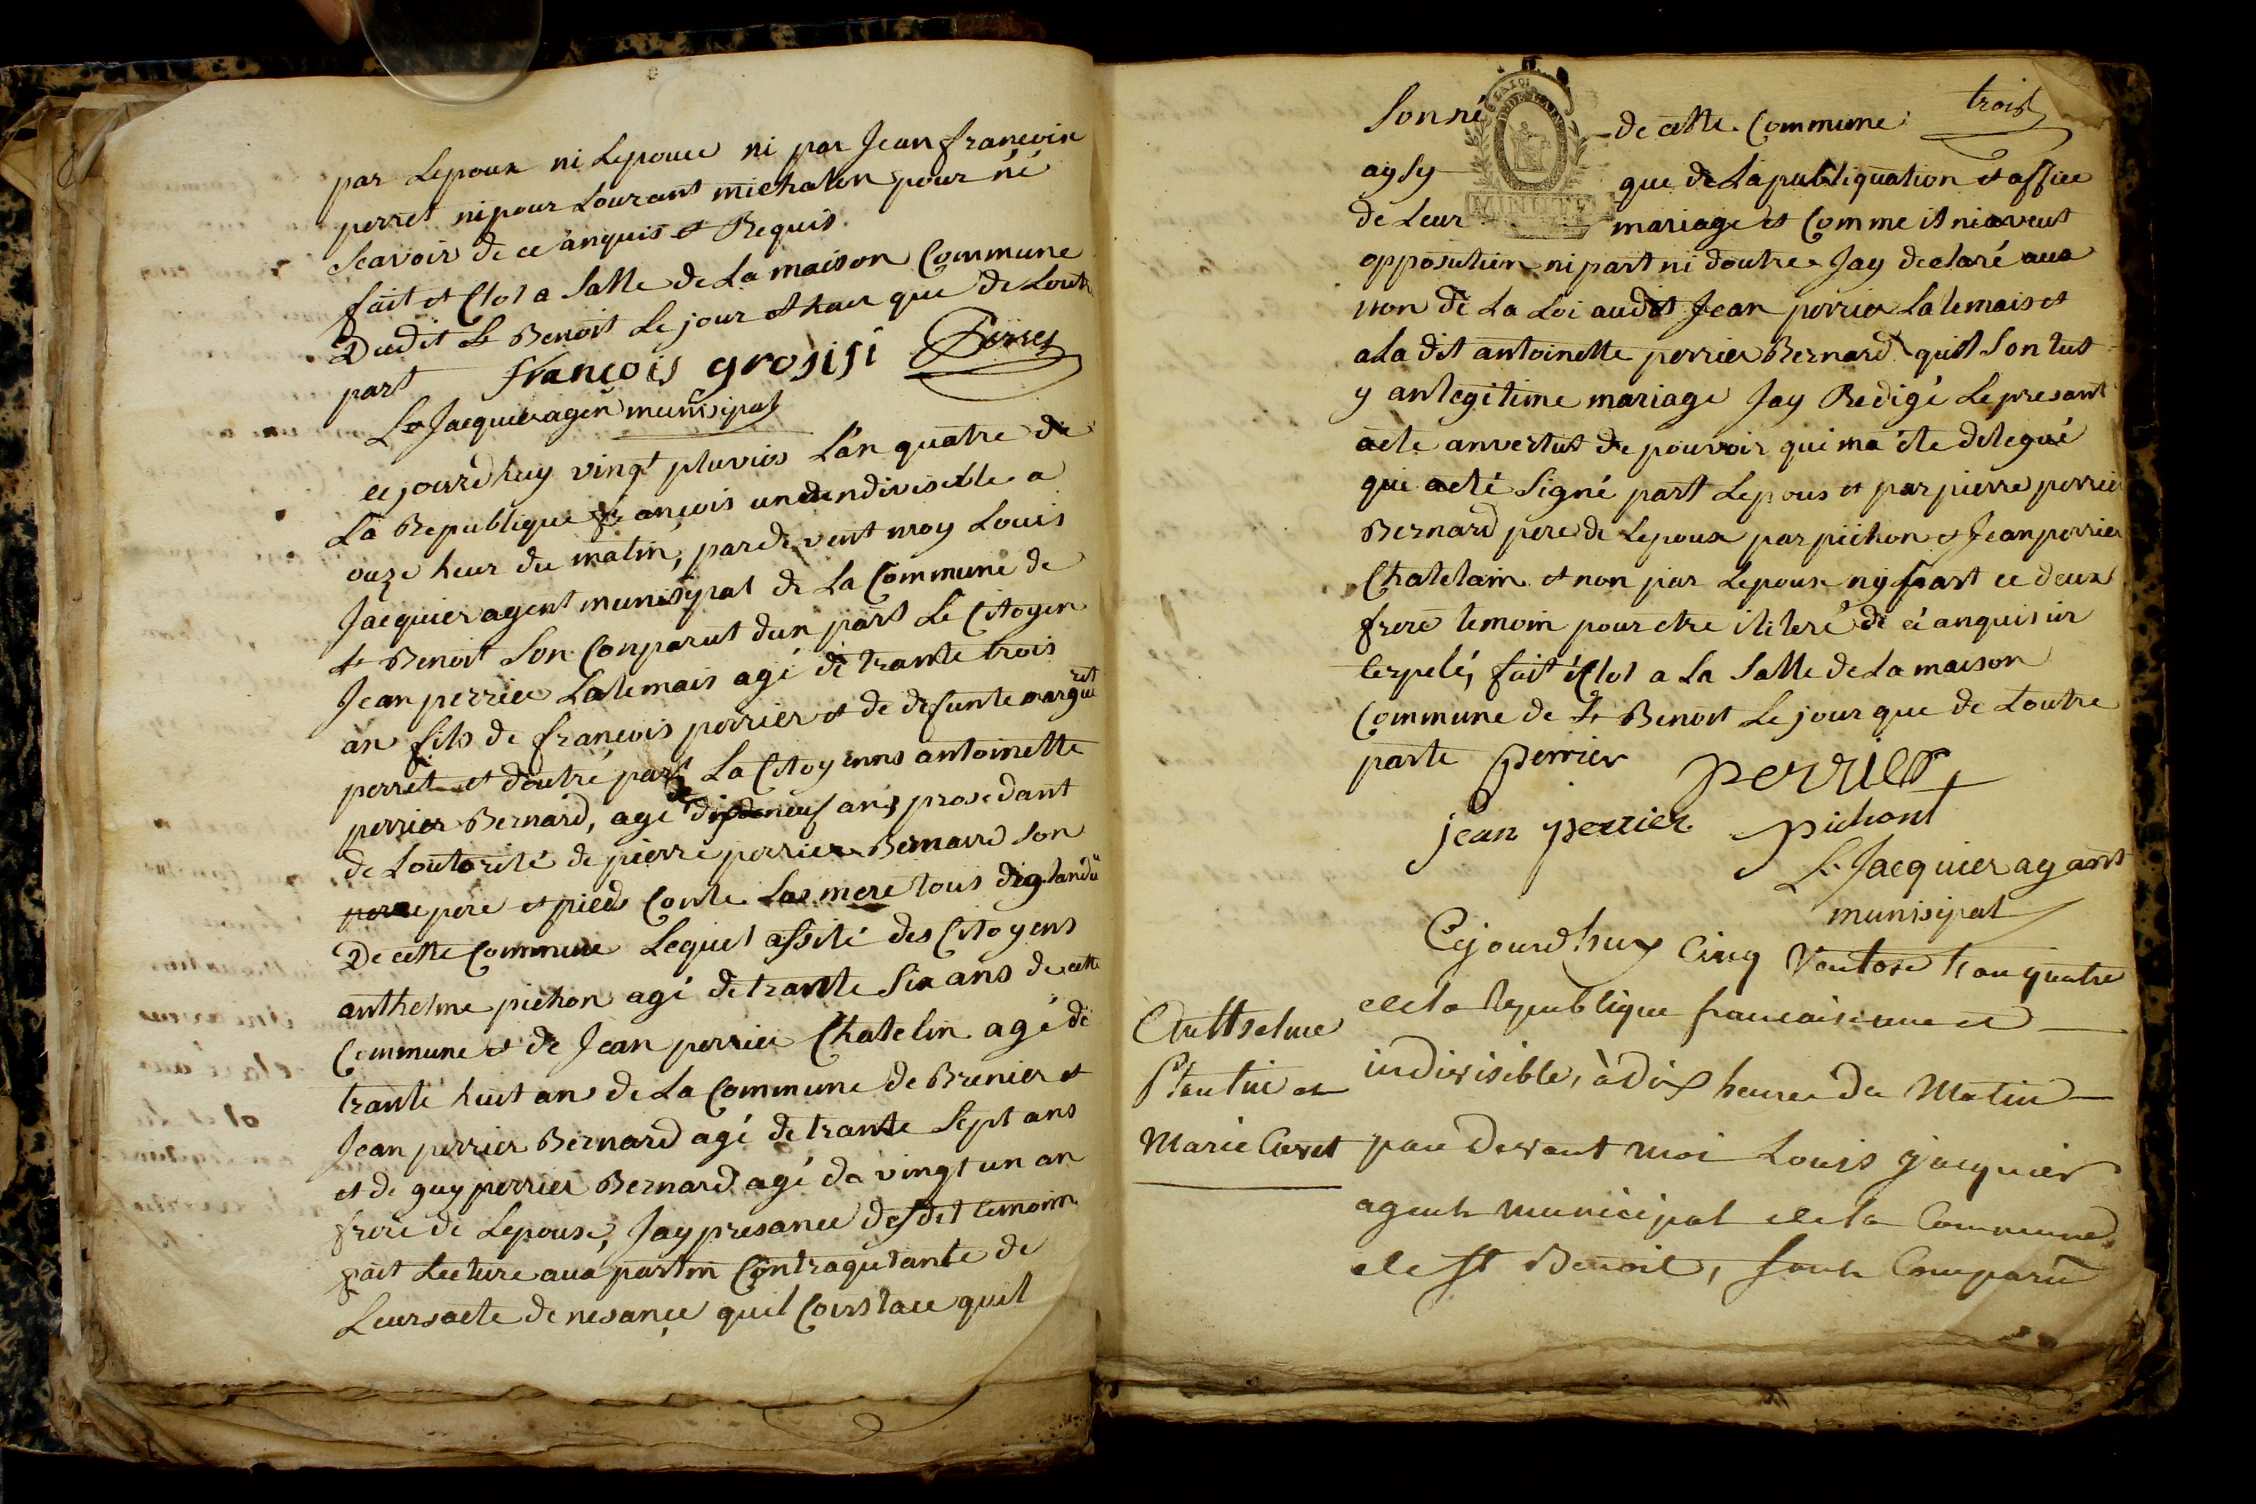 par Lepoux ni Lepouce ni par Jean françoix
perret ni pour Lourant michalon pour né
scavoir de ce anquis et Requis.
fait et Clot a Salle de La maison Commune
Dudit St Benoit Le jour et hau que de Loutr
part françois grosisi Perret
Ls Jacquier agen munisipal
cejourdhuy vingt pluvios Lan quatre de
La Republique françois un et indivisible a
onze heur du matin, pardevent moy Louis
Jacquier agent munisipal de La Commune de
St Benoit Son Conparut dun part Le Citoyen
Jean perrier Lalemais agé de trante trois
an fils de françois perrier et de defunte margueret
perret et doutré part La Citoyenns antoinette
perrier Bernard, agé de dix neuf ans, prosedant
de Loutorité de pierre perrier Bernard son
pere et pied Conte Las mere tous diglandu
De cette Commune Lequel assité des Citoyens
anthelme pichon agé de trante Six ans de cette
Commune et de Jean perrier Chatelin agé de
trante huit an de La Commune de Brenier et
Jean perrier Bernard agé de trante Sept ans
et de guy perrier Bernard agé de vingt un an
frere de Lepouse, Jay presance desdit temoin
fait Lecture aux partin Contraqutante de
Leurs acte de nesance quil Conslate quil
trois
Son né de cette Commune
aysy que de La publiquation et affice
de Leur MINUTE mariage et Comme il nia veut
opposution ni part ni doutre Jay declaré aux
non de La Loi audit Jean perrier Lalemais et
a La dit antoinette perrier Bernard quil Son tut
y an legitime mariage Jay Redigé Le presant
acte anvertut de pouvoir qui ma éte delegué
qui a eté Signé part Lepous et par pierre perrier
Bernard pere de Lepoux par pichon et Jean perrier
Chatelain et non par Lepouse ny part ce deux
frere temoin pour etre iliteré de cé anquis in
terpelé, fait et Clot a La Salle de La maison
Commune de St Benoit Le jour que de Loutre
parte perrier perrier
jean perrier pichont
Ls Jacquier agant
munisipal
Cejourd'huy Cinq Ventose L'an quatre
de la Republique francaise une et
indivisible, à Dix heures du Matin
Anthelme
Plantin et
Marie Cevet
par Devant moi Louis jacquier
agent municipal de la Commune
de St Benoit, sont Comparu